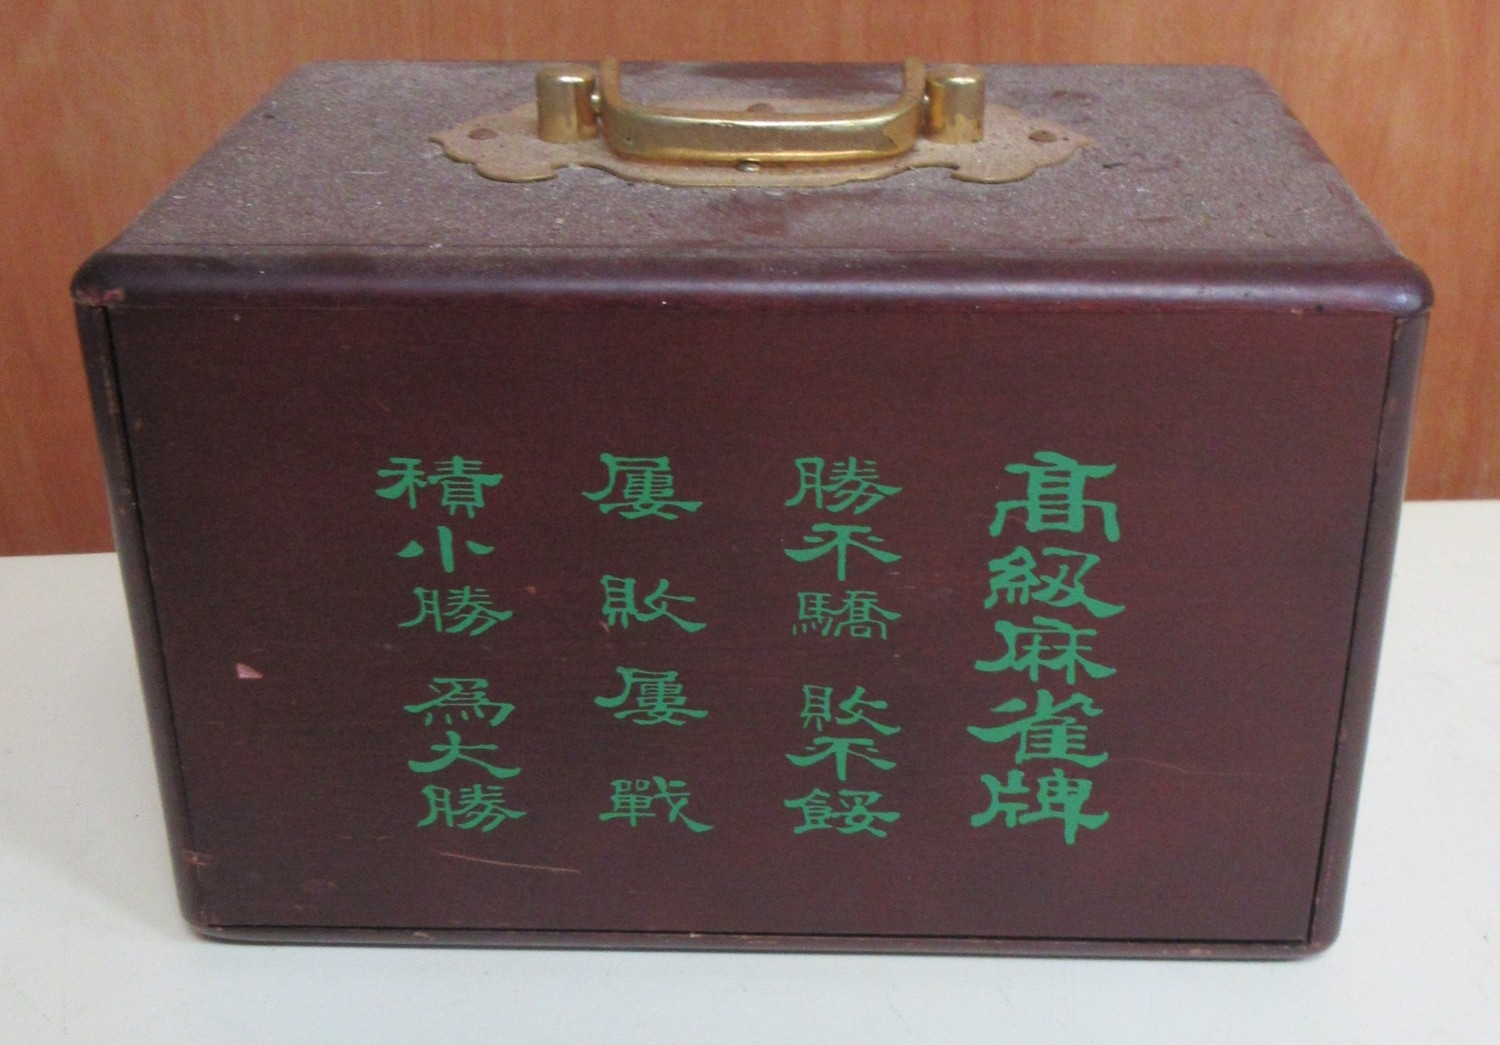 高級麻雀牌
勝不驕敗不餒
屢敗屢戰
積小勝為大勝